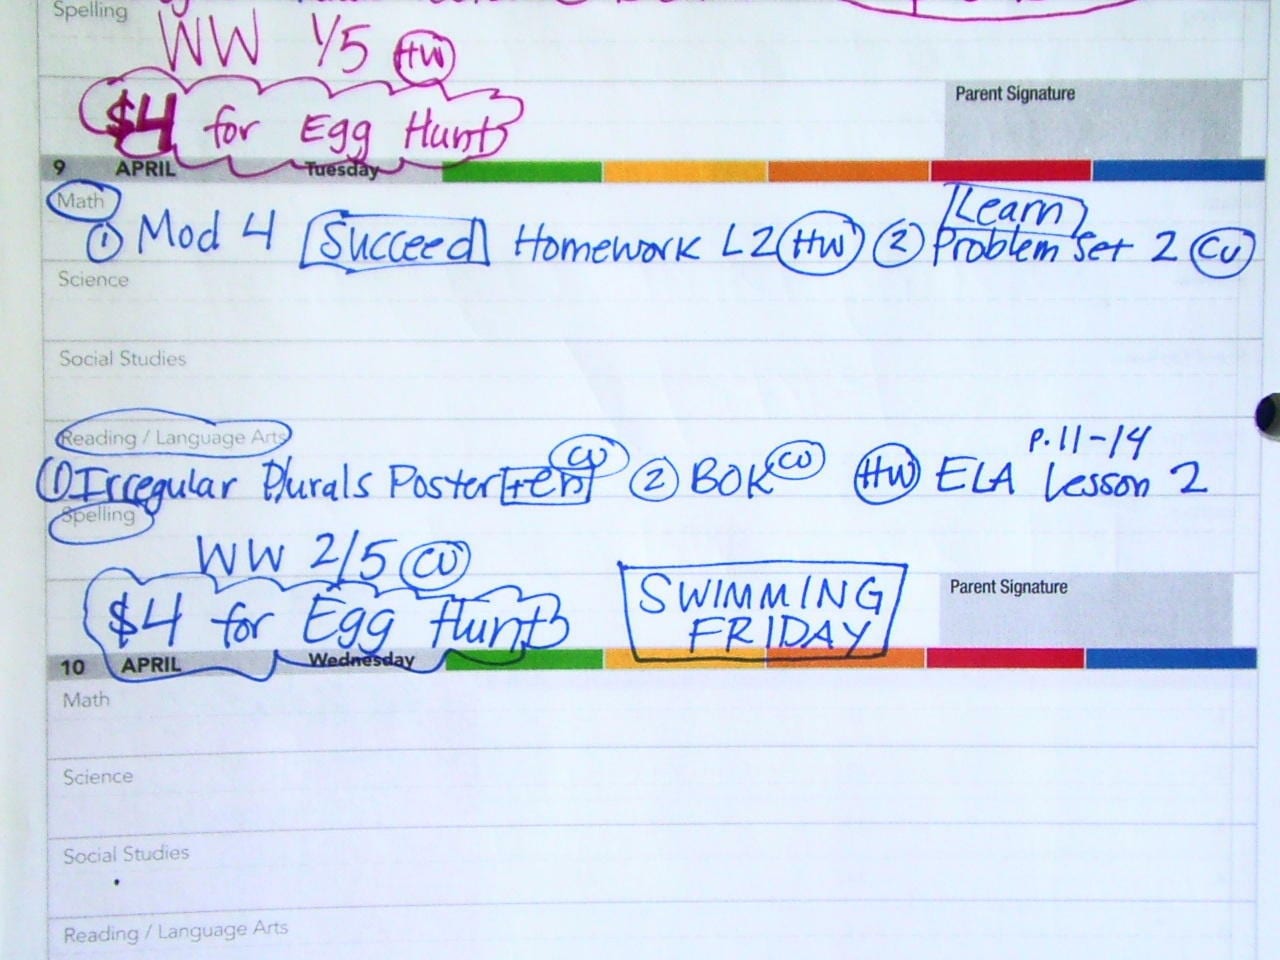 Spelling
WW 1/5 HW
$4 for Egg Hunt
Parent Signature
9 APRIL Tuesday
Math
① Mod 4 Succeed Homework L2 HW ② Learn Problem Set 2 CW
Science
Social Studies
Reading / Language Arts
p. 11-14
① Irregular Plurals Poster +en CW ② BOK CW HW ELA Lesson 2
Spelling
WW 2/5 CW
$4 for Egg Hunt
SWIMMING
FRIDAY
Parent Signature
10 APRIL Wednesday
Math
Science
Social Studies
Reading / Language Arts